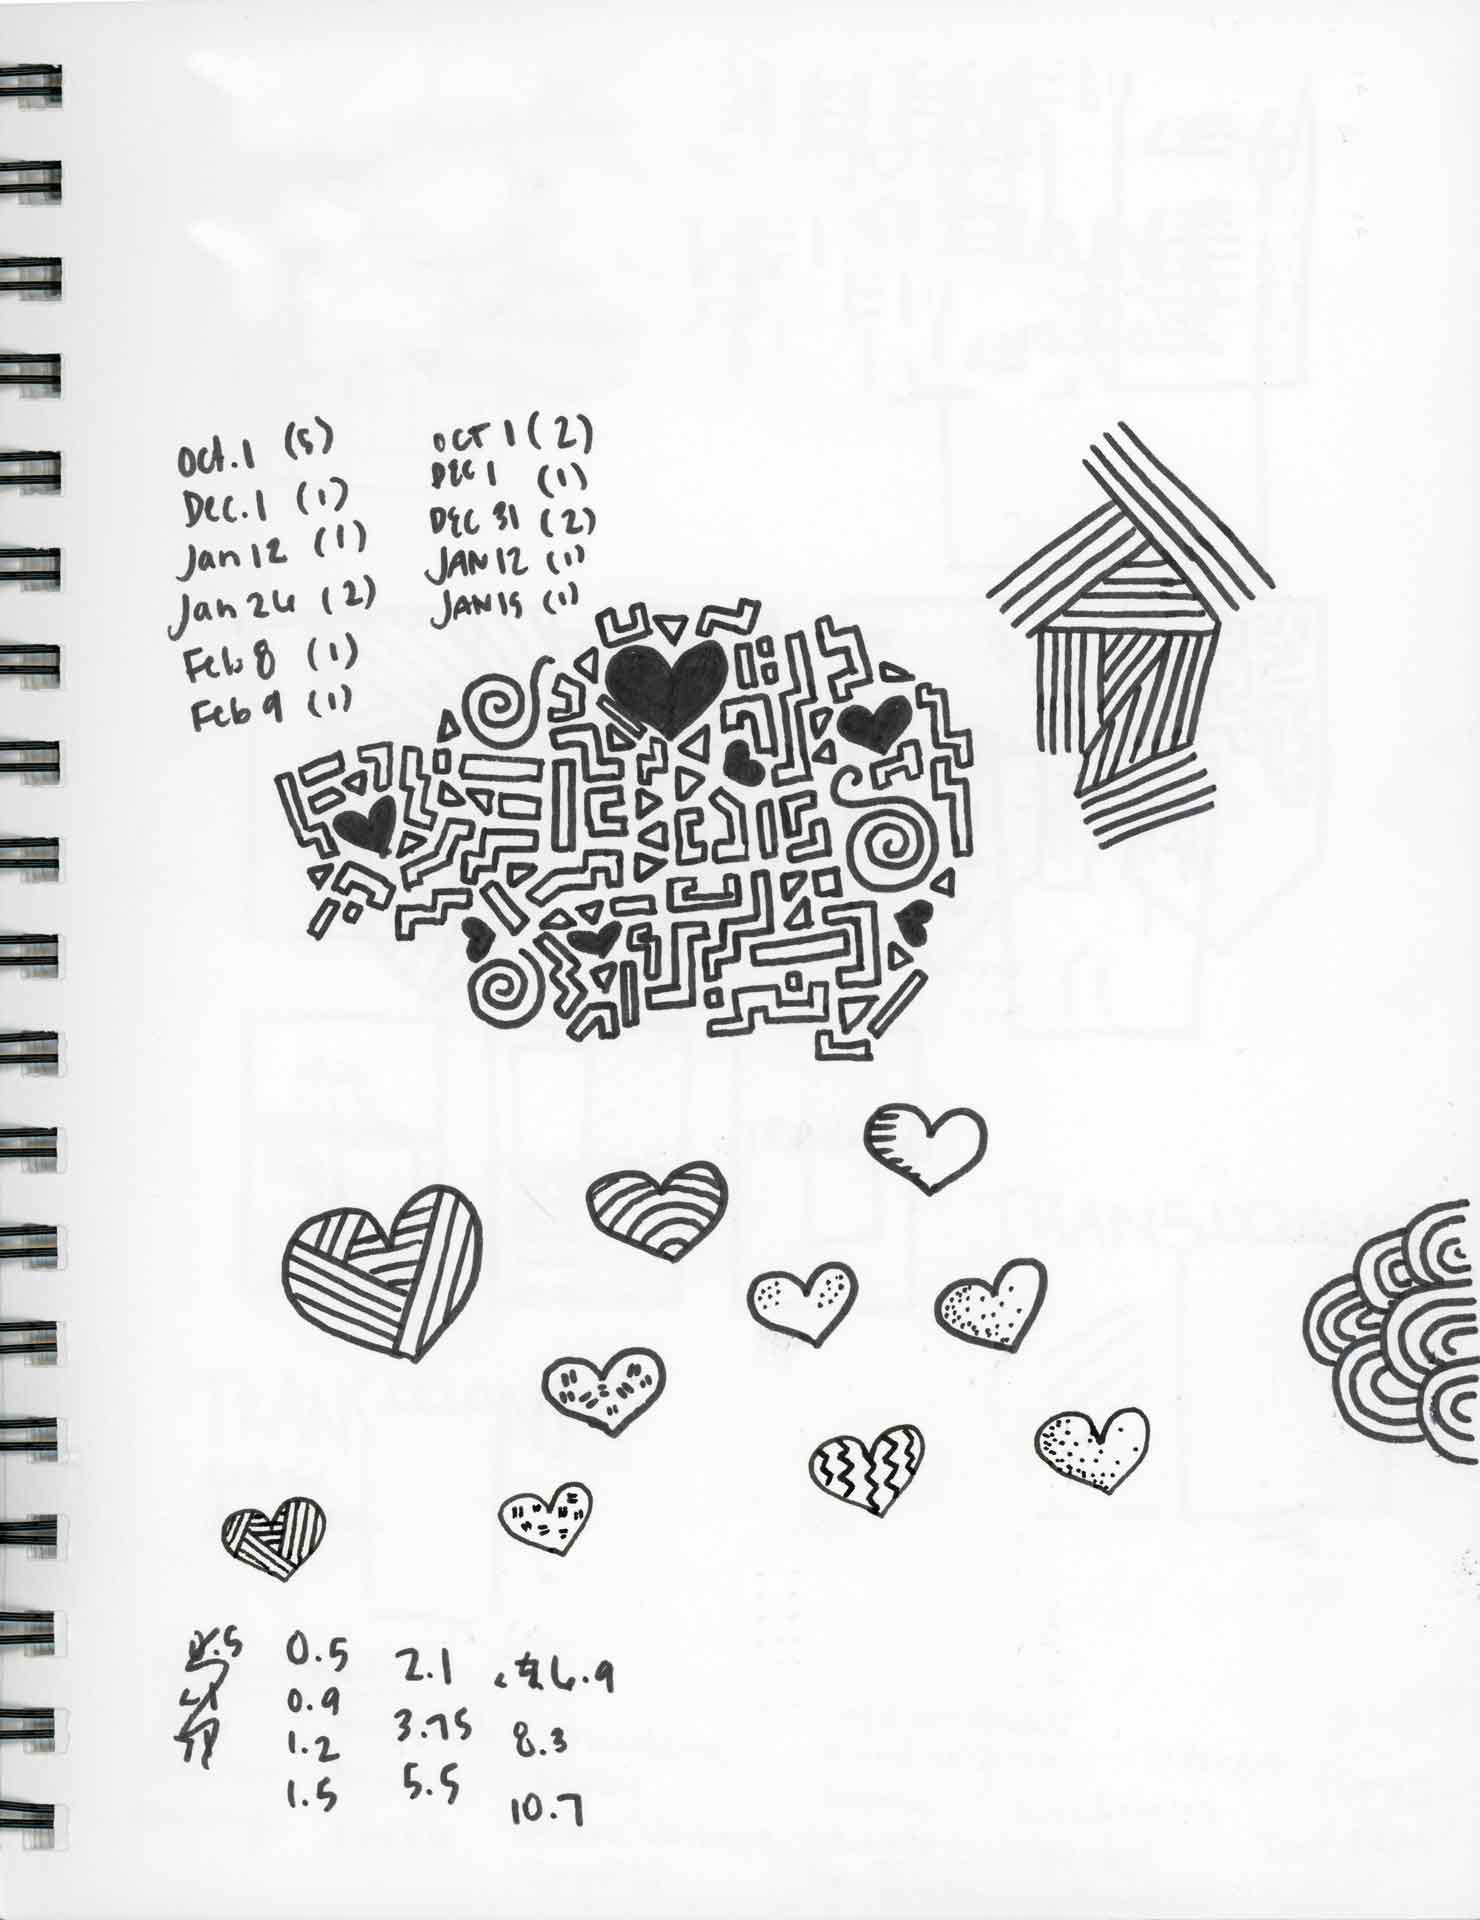 Oct. 1 (5)
Dec. 1 (1)
Jan 12 (1)
Jan 26 (2)
Feb 8 (1)
Feb 9 (1)
OCT 1 (2)
DEC 1 (1)
DEC 31 (2)
JAN 12 (1)
JAN 15 (1)
0.5
0.9
1.2
1.5
2.1
3.75
5.5
6.9
8.3
10.7